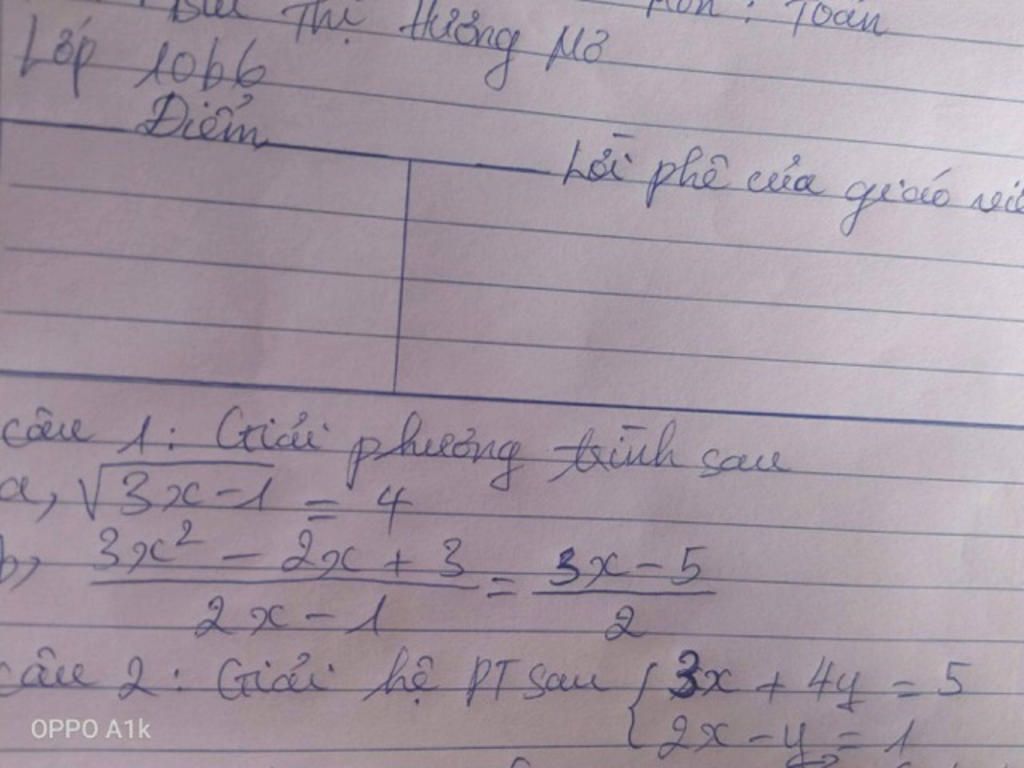 Bùi Thị Hương Mơ Môn : Toán
Lớp 10b6
Điểm
Lời phê của giáo
Câu 1 : Giải phương trình sau
a, √(3x-1) = 4
b, (3x² - 2x + 3)/(2x - 1) = (3x - 5)/2
Câu 2 : Giải hệ PT sau { 3x + 4y = 5
2x - y = 1
OPPO A1k